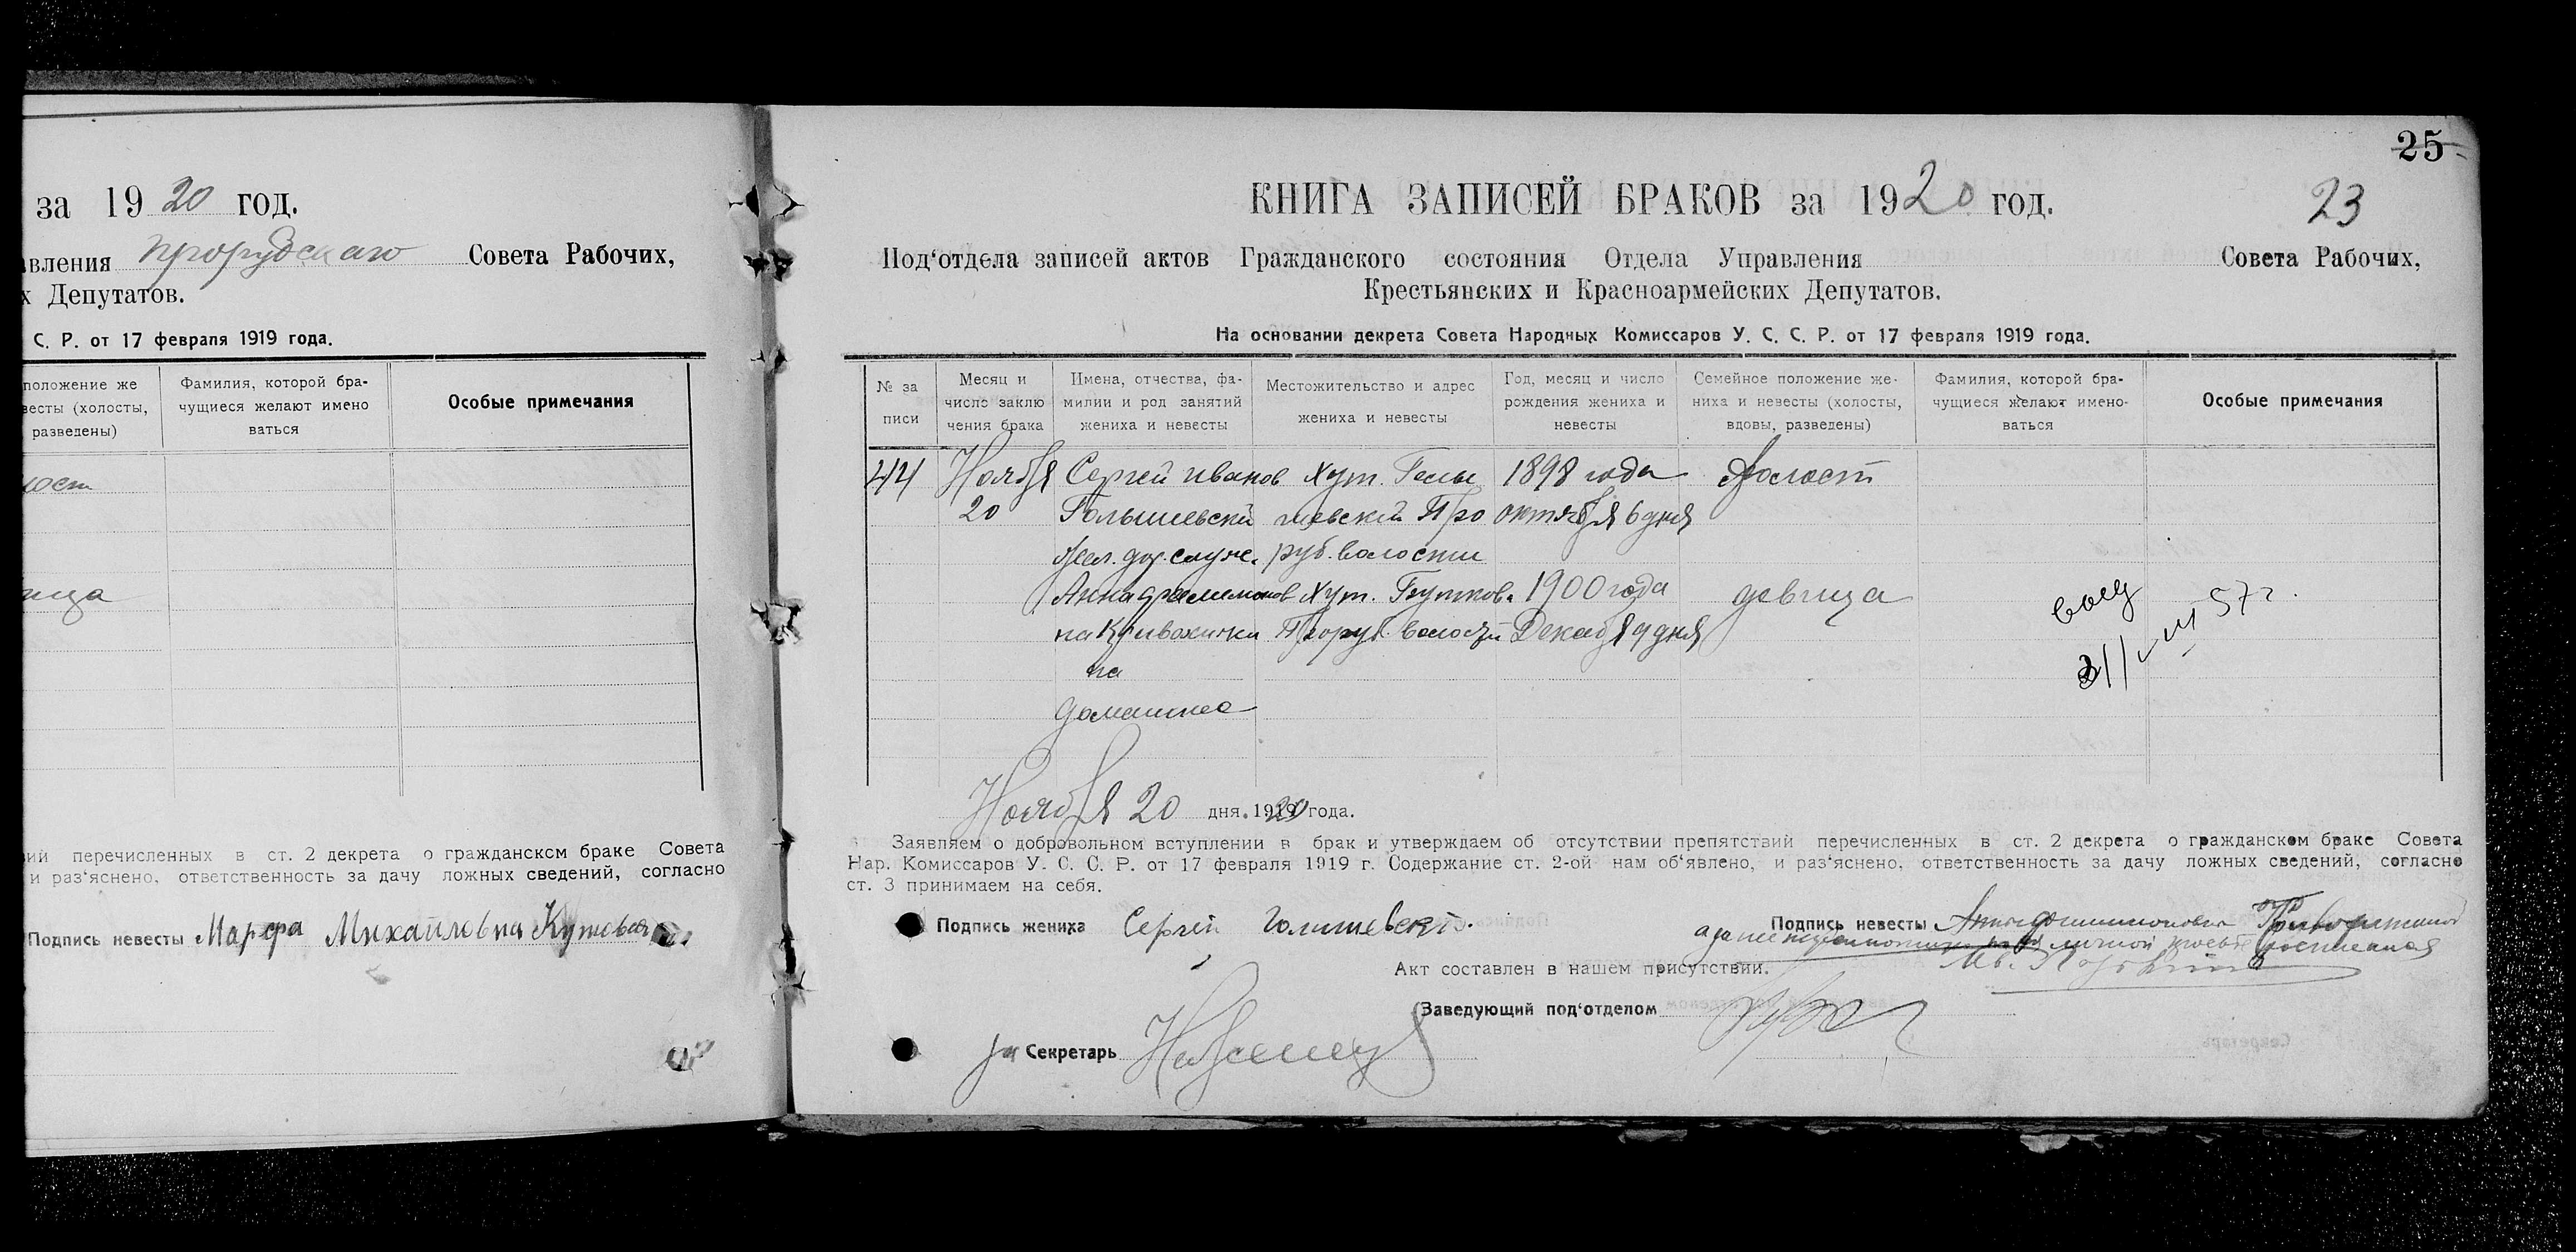 за 1920 год.
вления Прорубскаго Совета Рабочих,
х Депутатов.
С. Р. от 17 февраля 1919 года.
положение же
весты (холосты,
разведены)
Фамилия, которой бра-
чущиеся желают имено
ваться
Особые примечания
лост
ица
ий перечисленных в ст. 2 декрета о гражданском браке Совета
и раз'яснено, ответственность за дачу ложных сведений, согласно
Подпись невесты Марфа Михайловна
25
23
КНИГА ЗАПИСЕЙ БРАКОВ за 1920 год.
Под'отдела записей актов Гражданского состояния Отдела Управления Совета Рабочих,
Крестьянских и Красноармейских Депутатов.
На основании декрета Совета Народных Комиссаров У. С. С. Р. от 17 февраля 1919 года.
№ за
писи
Месяц и
число заклю
чения брака
Имена, отчества, фа-
милии и род занятий
жениха и невесты
Местожительство и адрес
жениха и невесты
Год, месяц и число
рождения жениха и
невесты
Семейное положение же-
ниха и невесты (холосты,
вдовы, разведены)
Фамилия, которой бра-
чущиеся желают имено-
ваться
Особые примечания
44 Ноября Сергей Иванов Хут. Голы 1898 года Холост
20 Голышевский шевский Про октября 6 дня
жел. дор. служ. руб. волости
Анна Хут. 1900 года девица
на Проруб. волости Декабря 9 дня
на
домашнее
57 г.
Ноября 20 дня 1920 года.
Заявляем о добровольном вступлении в брак и утверждаем об отсутствии препятствий перечисленных в ст. 2 декрета о гражданском браке Совета
Нар. Комиссаров У. С. С. Р. от 17 февраля 1919 г. Содержание ст. 2-ой нам об'явлено, и раз'яснено, ответственность за дачу ложных сведений, согласно
ст. 3 принимаем на себя.
Подпись жениха Сергей Голишевский.
Подпись невесты
Акт составлен в нашем присутствии.
(Заведующий под'отделом
Секретарь